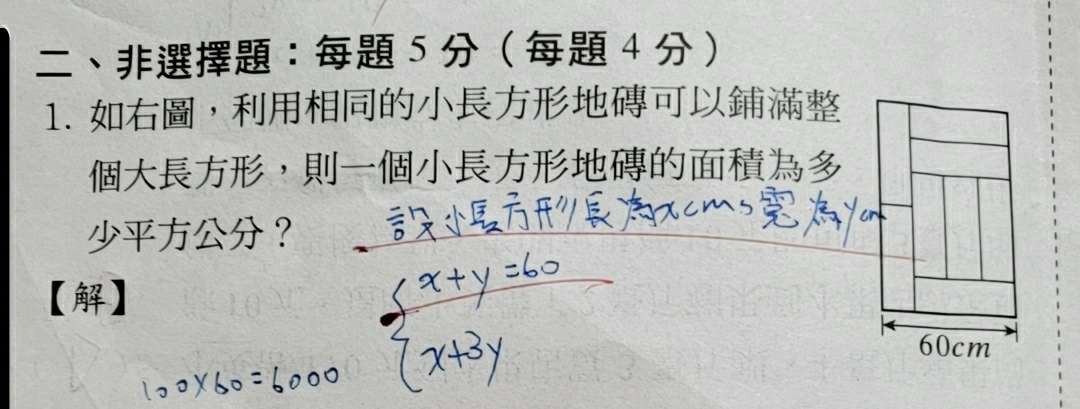 二、非選擇題：每題 5 分（每題 4 分）
1. 如右圖，利用相同的小長方形地磚可以鋪滿整
個大長方形，則一個小長方形地磚的面積為多
少平方公分？
設小長方形長為xcm，寬為ycm
【解】
x+y=60
x+3y
100×60=6000
60cm